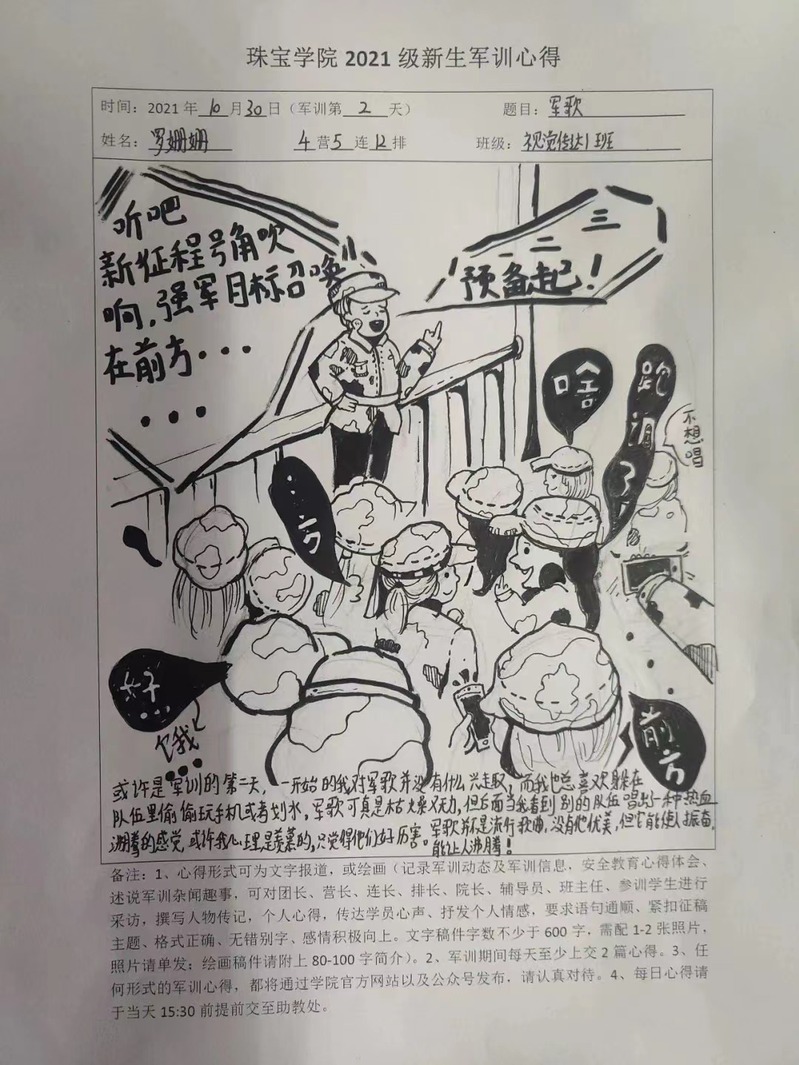 珠宝学院 2021 级新生军训心得
时间：2021 年 10 月 30 日（军训第 2 天） 题目：军歌
姓名：罗姗姗 4 营 5 连 12 排 班级：视觉传达1班
听吧
新征程号角吹
响，强军目标召唤
在前方···
···
一二三
预备起！
啥
跑调了
不想唱
···方
好
···
饿我
前方
···
或许是军训的第二天，一开始的我对军歌并没有什么兴趣，而我也总喜欢躲在
队伍里偷偷玩手机或者划水，军歌可真是枯燥又无力，但后面当我看到别的队伍唱出一种热血
沸腾的感觉，或许我心理是羡慕的，只觉得他们好厉害。军歌并不是流行歌曲，没有他优美，但它能使人振奋，
能让人沸腾！
备注：1、心得形式可为文字报道，或绘画（记录军训动态及军训信息，安全教育心得体会、
述说军训杂闻趣事，可对团长、营长、连长、排长、院长、辅导员、班主任、参训学生进行
采访，撰写人物传记，个人心得，传达学员心声、抒发个人情感，要求语句通顺、紧扣征稿
主题、格式正确、无错别字、感情积极向上。文字稿件字数不少于 600 字，需配 1-2 张照片，
照片请单发；绘画稿件请附上 80-100 字简介）。2、军训期间每天至少上交 2 篇心得。3、任
何形式的军训心得，都将通过学院官方网站以及公众号发布，请认真对待。4、每日心得请
于当天 15:30 前提前交至助教处。